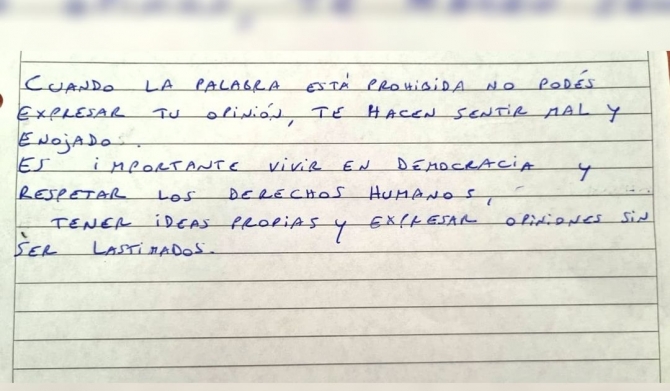 CUANDO LA PALABRA ESTÁ PROHIBIDA NO PODÉS
EXPRESAR TU OPINIÓN, TE HACEN SENTIR MAL Y
ENOJADO.
ES IMPORTANTE VIVIR EN DEMOCRACIA Y
RESPETAR LOS DERECHOS HUMANOS,
TENER IDEAS PROPIAS Y EXPRESAR OPINIONES SIN
SER LASTIMADOS.